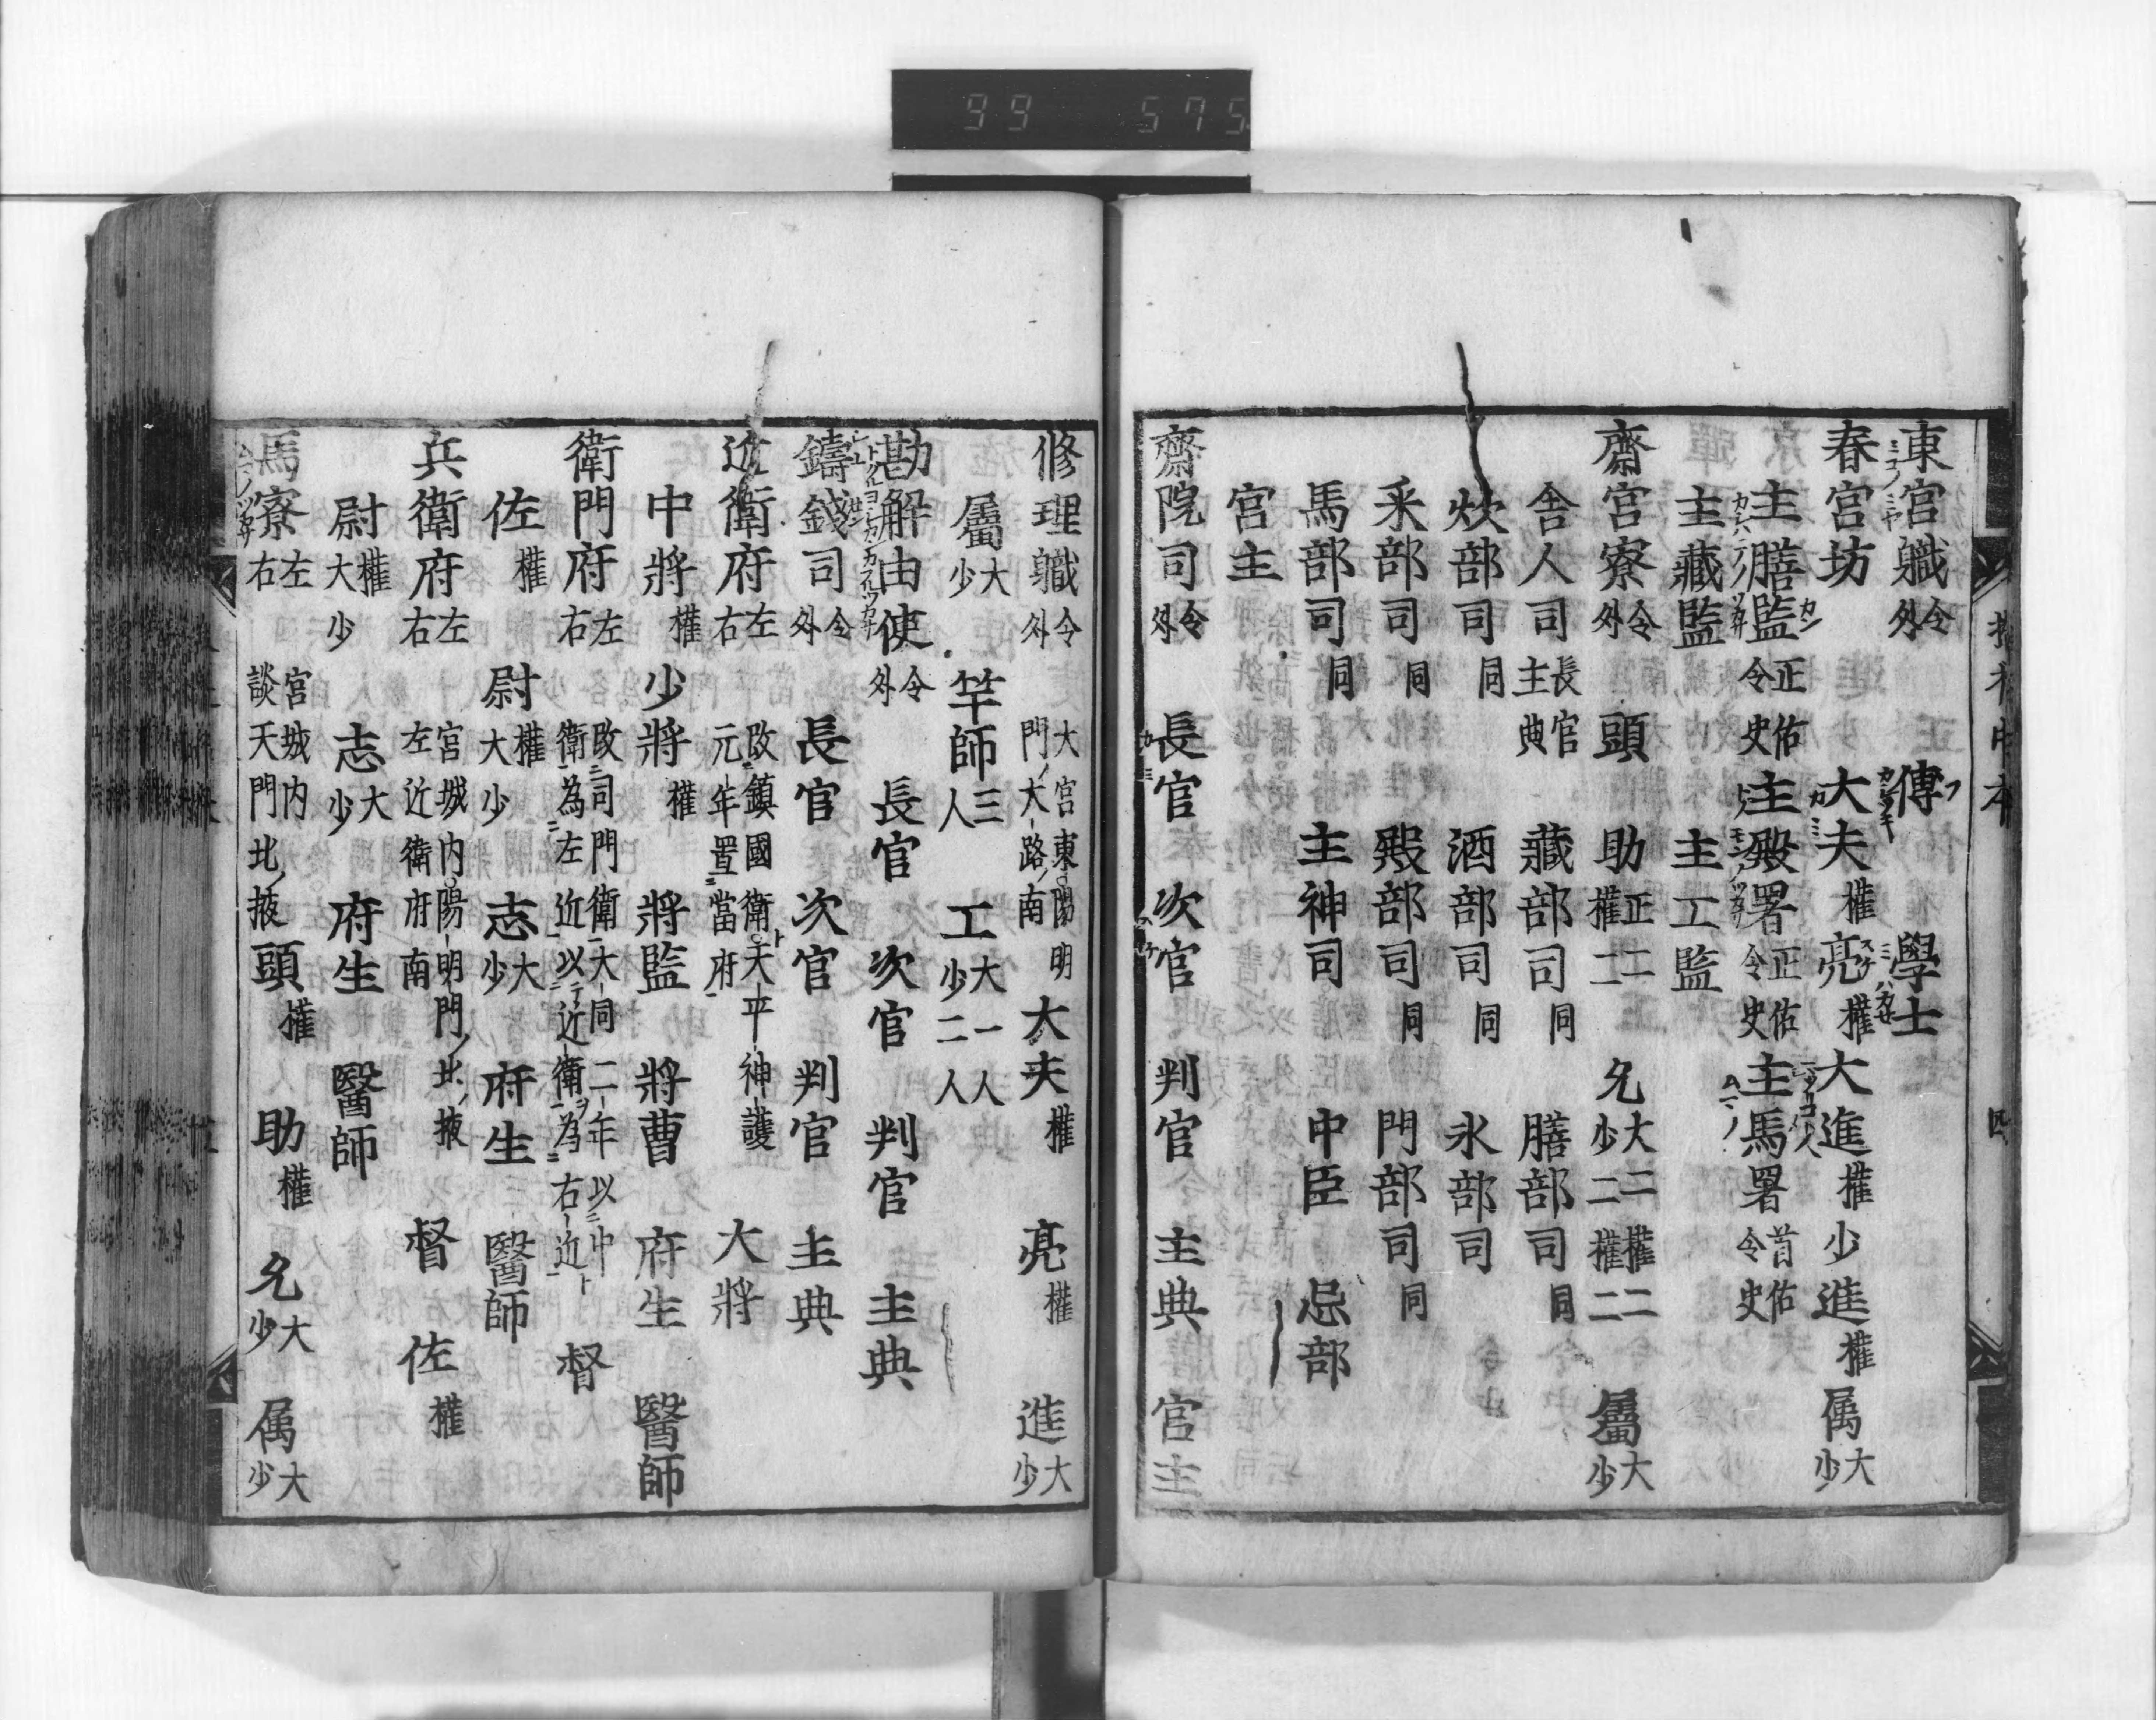 99 575
東宮職 令外 傅 學士
春宮坊 大夫 權 亮 權 大進 權 少進 權 属 大少
主膳監 正佑令史 主殿署 正佑令史 主馬署 首佑令史
主藏監 主工監
齋宮寮 令外 頭 助 正二權二 允 大二少二權二權二 屬 大少
舎人司 長官主典 藏部司 同 膳部司 同
炊部司 同 酒部司 同 水部司
釆部司 同 殿部司 同 門部司 同
馬部司 同 主神司 中臣 忌部
宮主
齋院司 令外 長官 次官 判官 主典 官主
修理職 令外 大宮東陽明門大路南 大夫 權 亮 權 進 大少
屬 大少 竿師 三人 工 大一人少二人
勘解由使 令外 長官 次官 判官 主典
鑄錢司 令外 長官 次官 判官 主典
近衛府 左右 改鎮國衛天平神護元年置當府 大將
中將 權 少將 權 將監 將曹 府生 醫師
衛門府 左右 改司門衛大同二年以中衛為左近以近衛為右近 督
佐 權 尉 權大少 志 大少 府生 醫師
兵衛府 左右 宮城内陽明門北掖左近衛府南 督 佐 權
尉 權大少 志 大少 府生 醫師
馬寮 左右 宮城内談天門北掖 頭 權 助 權 允 大少 属 大少